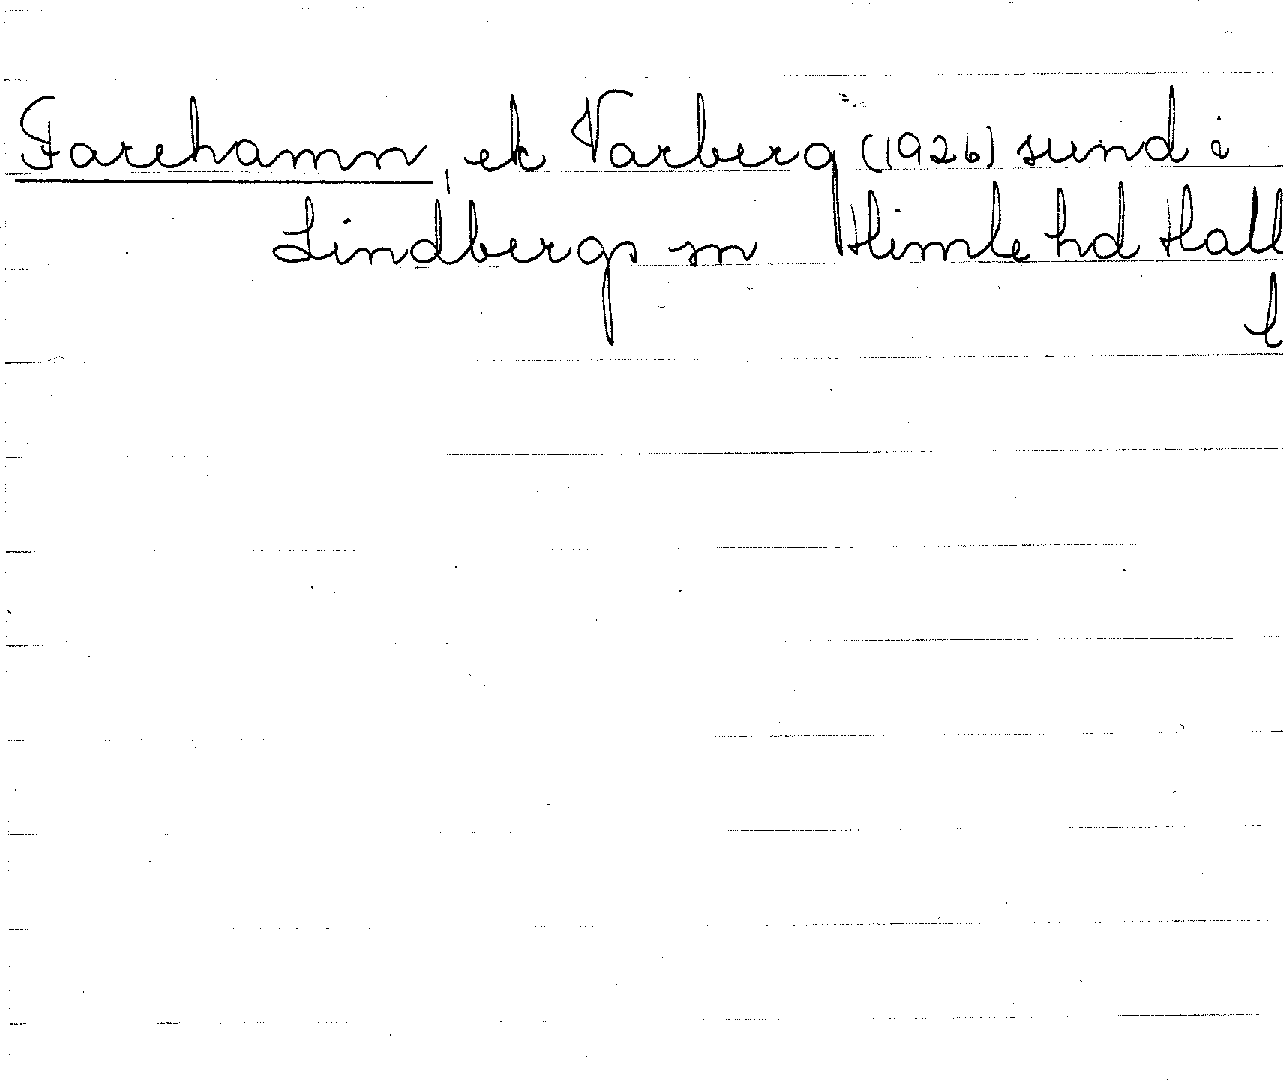 Farehamn, ek Varberg (1926) sund i
Lindbergs sn Himle hd Hall
l